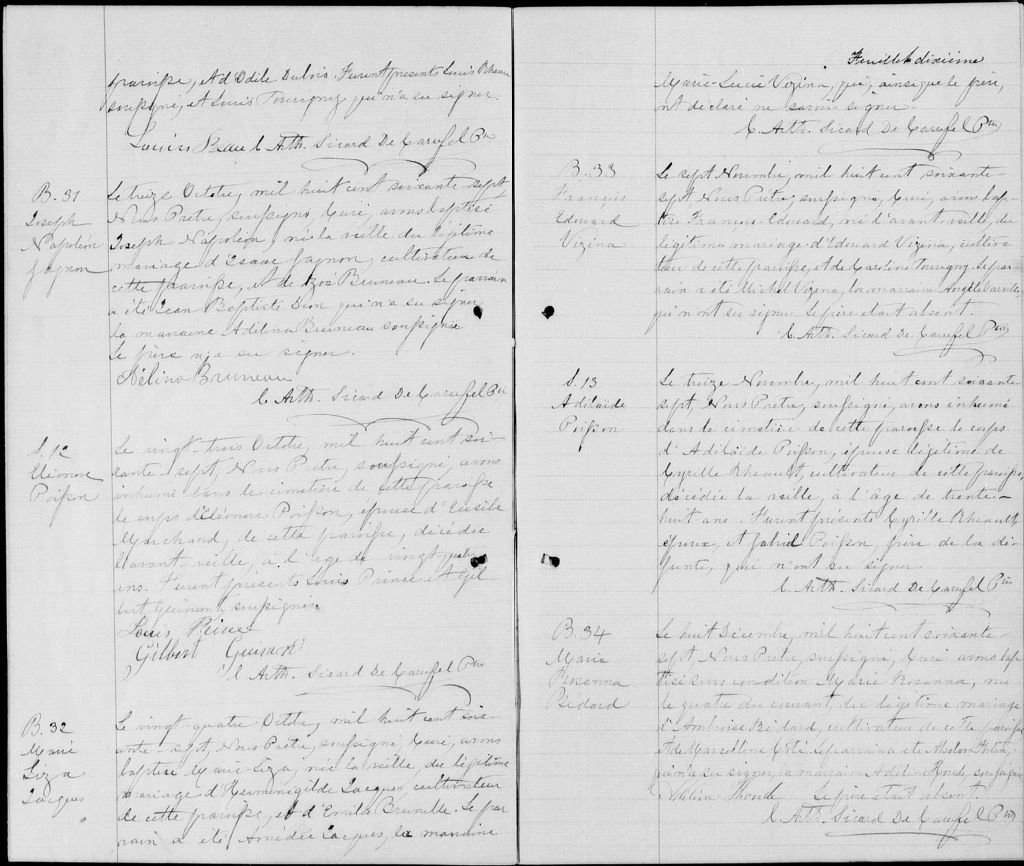 paroisse, et d'Odile Dubois. Furent présents Louis Rheau
soussigné, et Louis Tourigny qui n'a su signer.
Louis Reau C. Arth. Sicard De Carufel Ptre
B. 31
Joseph
Napoléon
Gagnon
Le treize Octobre, mil huit cent soixante-sept,
Nous Prêtre, soussigné, Curé, avons baptisé
Joseph Napoléon, né la veille du légitime
mariage d'Isaac Gagnon, cultivateur de
cette paroisse, et de Zoé Bruneau. Le parrain
a été Jean Baptiste Dion qui n'a su signer
la marraine Adélina Bruneau soussignée
Le père n'a su signer.
Adélina Bruneau
C. Arth. Sicard De Carufel Ptre
S. 12
Eléonore
Poisson
Le vingt-trois Octobre, mil huit cent soi-
xante-sept, Nous Prêtre, soussigné, avons
inhumé dans le cimetière de cette paroisse
le corps d'Eléonore Poisson, épouse d'
Marchand, de cette paroisse, décédée
l'avant-veille, à l'âge de vingt quatre
ans. Furent présents Louis Prince et Gil-
bert Guimont, soussignés.
Louis Prince
Gilbert Guimont
C. Arth. Sicard De Carufel Ptre
B. 32
Marie
Liza
Jacques
Le vingt-quatre Octobre, mil huit cent soix-
ante-sept, Nous Prêtre, soussigné, Curé, avons
baptisé Marie-Liza, née la veille, du légitime
mariage d'Herménigilde Jacques, cultivateur
de cette paroisse, et d'Emilie Brunelle. Le par-
rain a été Amédée Jacques, la marraine
Feuillet dixième
Marie-Lucie Vézina, qui, ainsi que le père,
ont déclaré ne savoir signer.
C. Arth. Sicard De Carufel Ptre
B. 33
François
Edouard
Vézina
Le sept Novembre, mil huit cent soixante-
sept, Nous Prêtre, soussigné, Curé, avons bap-
tisé François-Edouard, né l'avant veille, du
légitime mariage d'Edouard Vézina, cultiva-
teur de cette paroisse, et de Caroline Tourigny. Le par-
rain a été Michel Vézina, la marraine Angèle
qui n'ont su signer. Le père était absent.
C. Arth. Sicard De Carufel Ptre
S. 13
Adélaïde
Poisson
Le treize Novembre, mil huit cent soixante
sept, Nous Prêtre, soussigné, avons inhumé
dans le cimetière de cette paroisse le corps
d'Adélaïde Poisson, épouse légitime de
Cyrille Rheault, cultivateur de cette paroisse,
décédée la veille, à l'âge de trente-
huit ans. Furent présents Cyrille Rheault,
époux, et Gabriel Poisson, frère de la dé-
funte, qui n'ont su signer.
C. Arth. Sicard De Carufel Ptre
B. 34
Marie
Rosanna
Bédard
Le huit Décembre, mil huit cent soixante-
sept, Nous Prêtre, soussigné, Curé avons bap-
tisé sous condition Marie Rosanna, née
le quatre du courant, du légitime mariage
d'Ambroise Bédard, cultivateur de cette paroisse
et de Marcelline Côté. Le parrain a été
qui n'a su signer, la marraine Adéline Houde, soussignée
Adéline Houde Le père était absent.
C. Arth. Sicard De Carufel Ptre